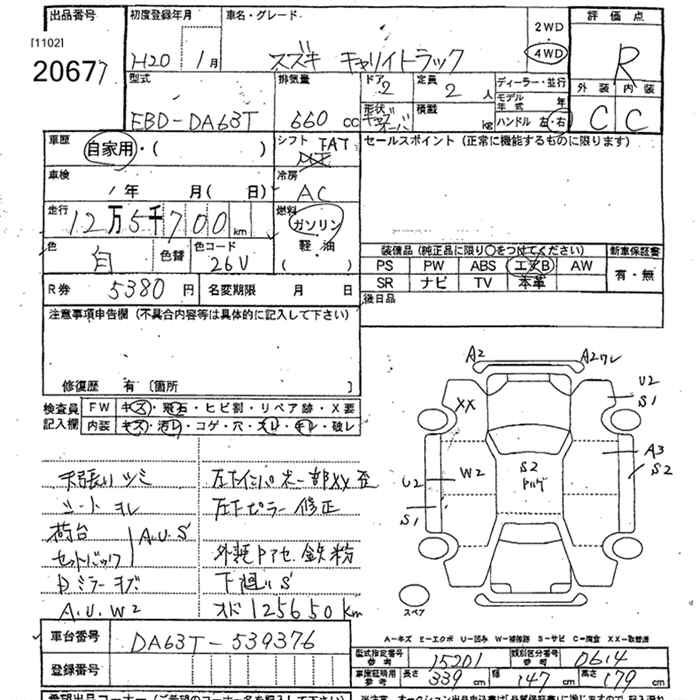 出品番号
[1102]
20677
初度登録年月
H20 1月
車名・グレード
スズキ キャリイトラック
2WD
4WD
評価点
R
外装 内装
C C
型式
EBD-DA63T
排気量
660 cc
ドア 2
形状
定員 2人
積載 kg
ディーラー・並行
モデル年式 年
ハンドル 左・右
車歴
自家用・( )
シフト FAT
車検
年 月( 日)
冷房
AC
走行
12万5千700km
燃料
ガソリン
軽・油
( )
色
白
色替
色コード
26U
R券 5380円
名変期限 月 日
セールスポイント(正常に機能するものに限ります)
装備品(純正品に限り○をつけてください)
PS PW ABS エアB AW
SR ナビ TV 本革
新車保証書
有・無
後日品
注意事項申告欄(不具合内容等は具体的に記入して下さい)
修復歴 有〔箇所
検査員記入欄
FW キズ・飛石・ヒビ割・リペア跡・X要
内装 キズ・汚レ・コゲ・穴・スレ・キレ・破レ
天張り ツミ
シート ヨレ
荷台
セットバック
A.U.S
Dミラー キズ
A.U.W2
左下インパネ一部XX歪
左下ピラー修正
外装 鉄粉
下廻りS
オド125650km
A2
A2ワレ
U2
S1
XX
A3
S2
W2
S2
U2
S1
スペア
A-キズ E-エクボ U-凹み W-補修跡 S-サビ C-腐食 XX-取替済
車台番号 DA63T-539376
登録番号
型式指定番号 参考 15201
類別区分番号 参考 0614
車庫証明用 参考 長さ 339cm 幅 147cm 高さ 179cm
希望出品コーナー(ご希望のコーナーに